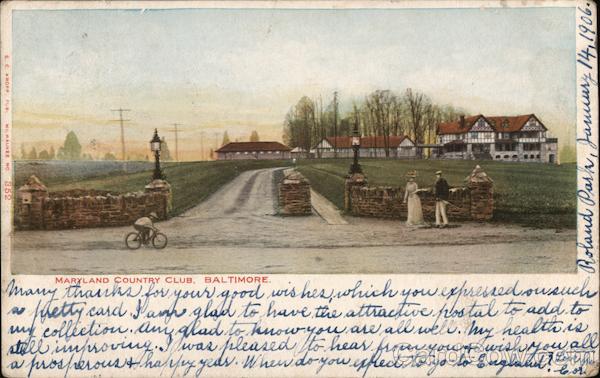 Roland Park, January 14, 1906.
E. C. KROPP, PUB. MILWAUKEE NO. 352
MARYLAND COUNTRY CLUB, BALTIMORE.
Many thanks for your good wishes, which you expressed on such
a pretty card. I am glad to have the attractive postal to add to
my collection. Am glad to know you are all well. My health is
still improving. I was pleased to hear from you & wish you all
a prosperous & happy year. When do you expect to go to England?